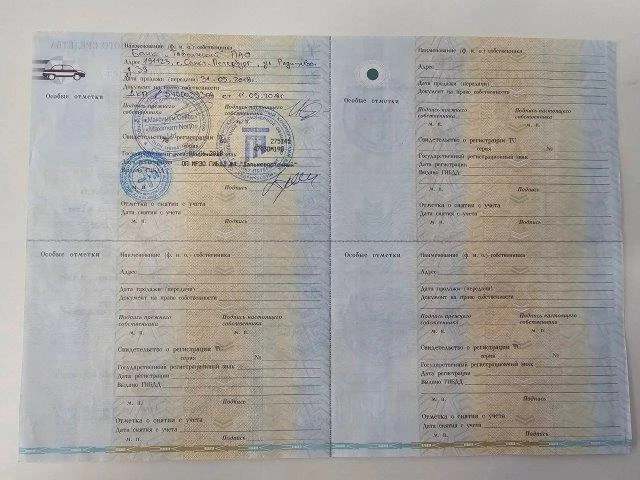 Наименование (ф. и. о.) собственника
Банк "Таврический" ПАО
Адрес 191123, г. Санкт-Петербург, ул. Радищева,
д. 39
Дата продажи (передачи) 31.05.2018г.
Документ на право собственности
ДКП от 11.05.2018г.
Особые отметки
Подпись прежнего собственника
Подпись настоящего собственника
«Максимум Север»
«Maximum North»
Свидетельство о регистрации ТС
№ 275145
Государственный регистрационный знак
Дата регистрации 2018
Выдано ГИБДД ОП МРЭО ГИБДД
м. п.
Подпись
Отметка о снятии с учета
Дата снятия с учета
м. п.
Подпись
Особые отметки
Наименование (ф. и. о.) собственника
Адрес
Дата продажи (передачи)
Документ на право собственности
Подпись прежнего
собственника
Подпись настоящего
собственника
м. п.
м. п.
Свидетельство о регистрации ТС
серия №
Государственный регистрационный знак
Дата регистрации
Выдано ГИБДД
м. п.
Подпись
Отметка о снятии с учета
Дата снятия с учета
м. п.
Подпись
Наименование (ф. и. о.) собственника
Адрес
Особые отметки
Дата продажи (передачи)
Документ на право собственности
Подпись прежнего
собственника
Подпись настоящего
собственника
м. п.
м. п.
Свидетельство о регистрации ТС
серия №
Государственный регистрационный знак
Дата регистрации
Выдано ГИБДД
м. п.
Подпись
Отметка о снятии с учета
Дата снятия с учета
м. п.
Подпись
Особые отметки
Наименование (ф. и. о.) собственника
Адрес
Дата продажи (передачи)
Документ на право собственности
Подпись прежнего
собственника
Подпись настоящего
собственника
м. п.
м. п.
Свидетельство о регистрации ТС
серия №
Государственный регистрационный знак
Дата регистрации
Выдано ГИБДД
м. п.
Подпись
Отметка о снятии с учета
Дата снятия с учета
м. п.
Подпись